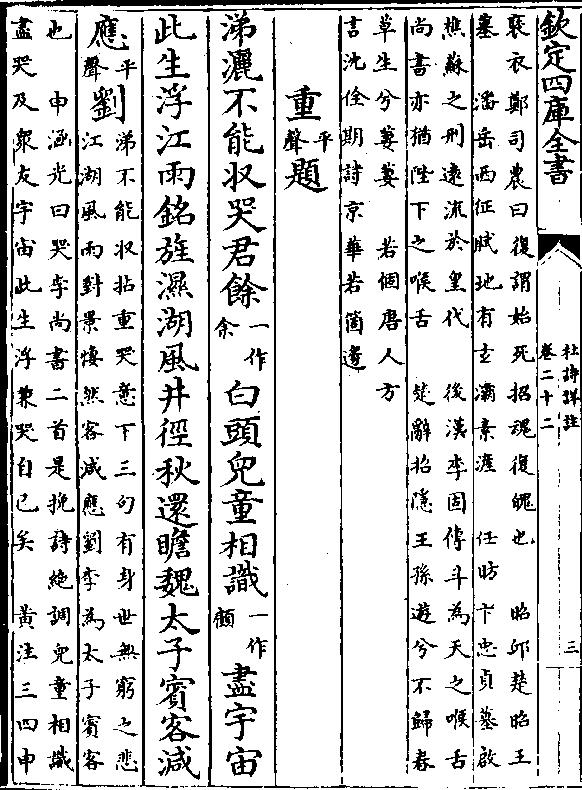 欽定四庫全書
杜詩詳註
卷二十二
三
裘衣鄭司農曰復謂始死招魂復魄也　昭邱楚昭王
墓　潘岳西征賦地有玄灞素滻　任昉卞忠貞墓啟
樵蘇之刑遠流於皇代　後漢李固傳斗為天之喉舌
尚書亦猶陛下之喉舌　楚辭招隱王孫遊兮不歸春
草生兮萋萋　若個唐人方
言沈佺期詩京華若箇邊
重平聲題
涕灑不能收哭君餘一作余白頭兒童相識一作顧盡宇宙
此生浮江雨銘旌濕湖風井徑秋還瞻魏太子賓客減
應平聲劉
涕不能收拈重哭意下三句有身世無窮之悲
江湖風雨對景悽然客減應劉李為太子賓客
也　申涵光曰哭李尚書二首是挽詩絕調兒童相識
盡哭及衆友宇宙此生浮兼哭自己矣　黃注三四申